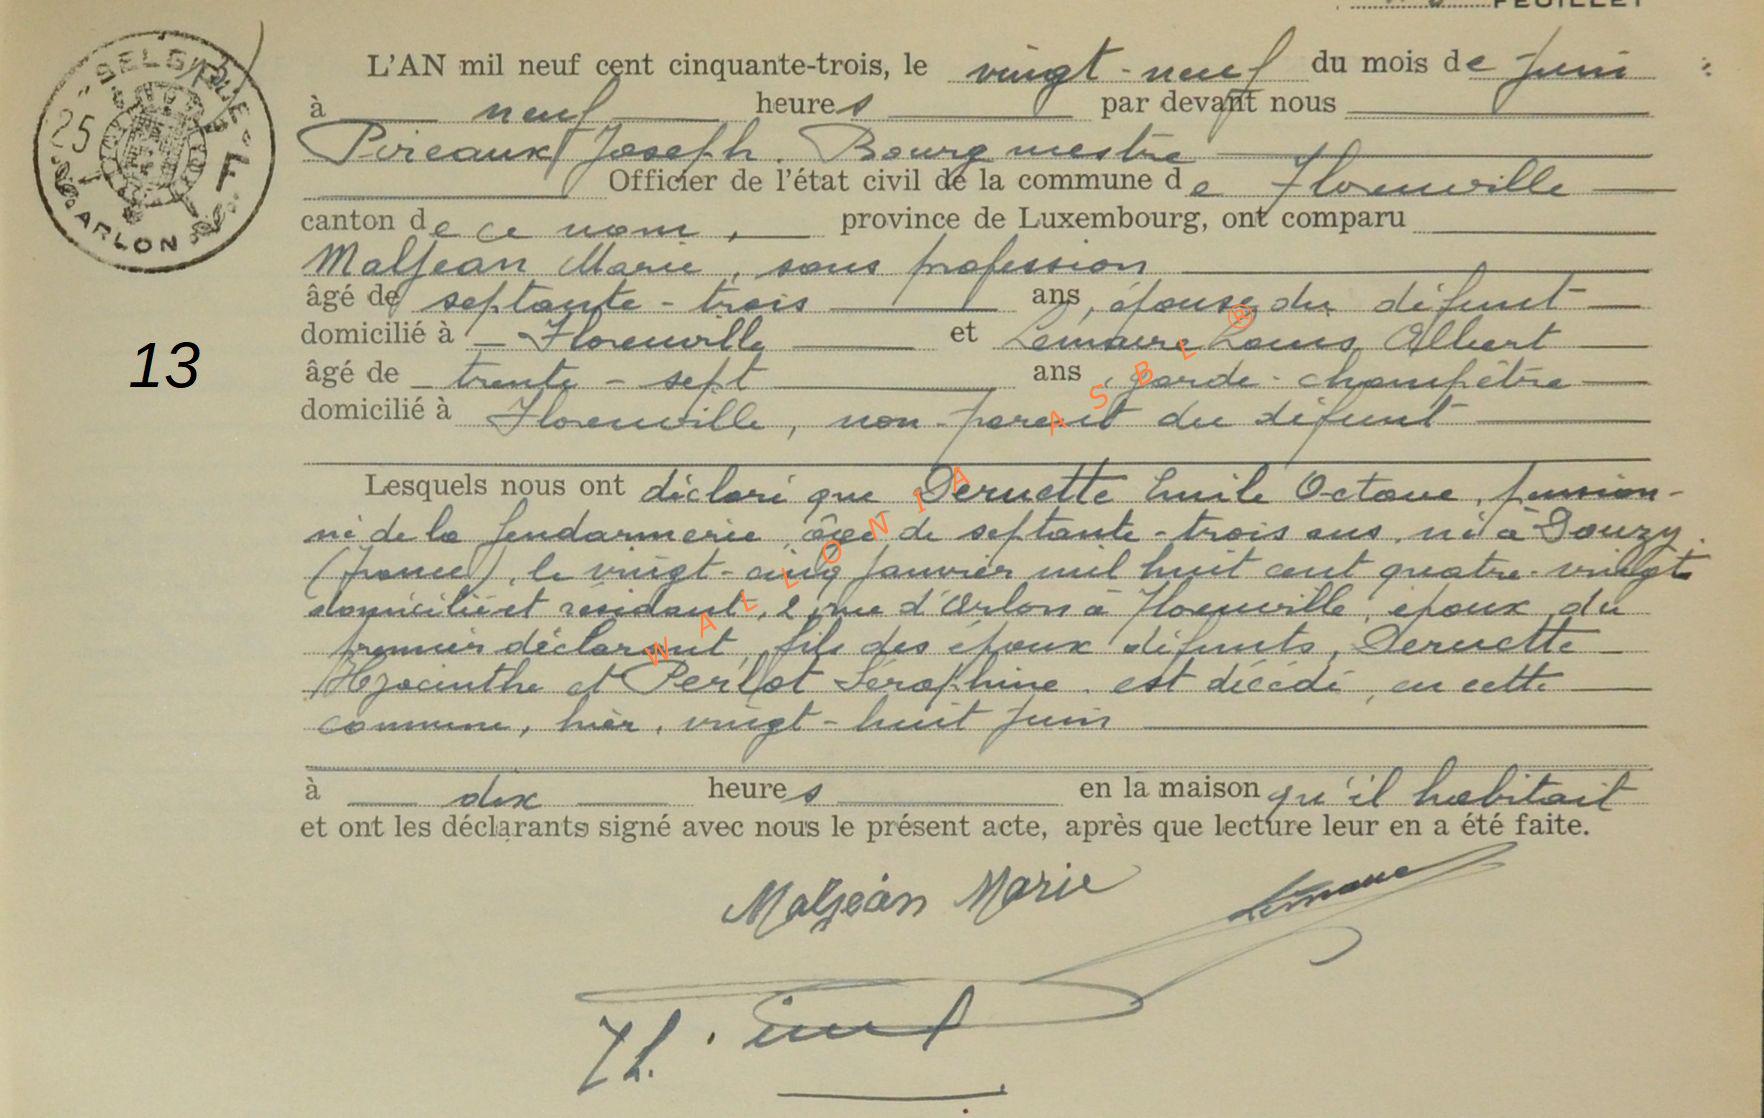 FEUILLET
BELGIQUE
25 F
ARLON
L'AN mil neuf cent cinquante-trois, le vingt-neuf du mois de Juin
à neuf heures par devant nous
Pireaux Joseph, Bourgmestre
Officier de l'état civil de la commune de Florenville
canton de ce nom, province de Luxembourg, ont comparu
Maljean Marie, sans profession
âgé de septante-trois ans, épouse du défunt
domicilié à Florenville et Lemaire Louis Albert
13
âgé de trente-sept ans, garde-champêtre
domicilié à Florenville, non-parent du défunt
Lesquels nous ont déclaré que Deruette Emile Octave, pension-
né de la gendarmerie, âgé de septante-trois ans, né à Douzy
(France), le vingt-cinq Janvier mil huit cent quatre-vingt
domicilié et résidant, 2, rue d'Arlon à Florenville, époux du
premier déclarant, fils des époux défunts, Deruette
Hyacinthe et Perlot Séraphine, est décédé, en cette
commune, hier, vingt-huit Juin
à dix heures en la maison qu'il habitait
et ont les déclarants signé avec nous le présent acte, après que lecture leur en a été faite.
Maljean Marie Lemaire
WALLONIA ASBL ®